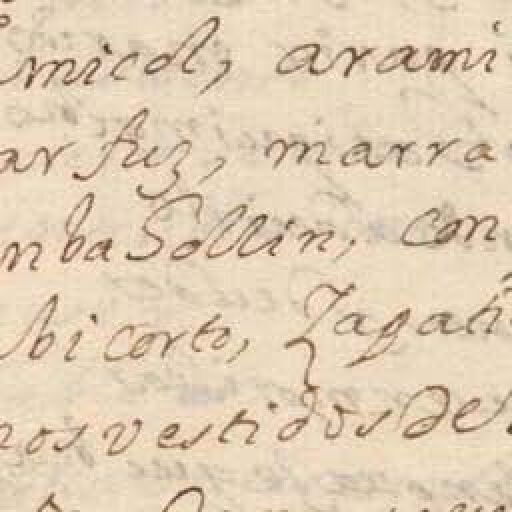 micol, arami
ar fuz, marra
nba Sollin, con
bicorto, Zagati
nos vestidos de